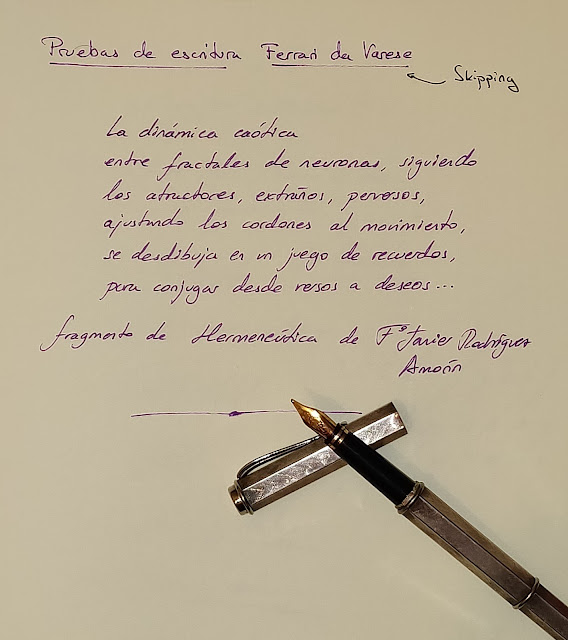 Pruebas de escritura Ferrari da Varese
Skipping
La dinámica caótica
entre fractales de neuronas, siguiendo
los atractores, extraños, perversos,
ajustando los cordones al movimiento,
se desdibuja en un juego de recuerdos,
para conjugar desde versos a deseos...
fragmento de Hermenéutica de Fº Javier Rodríguez
Amorín